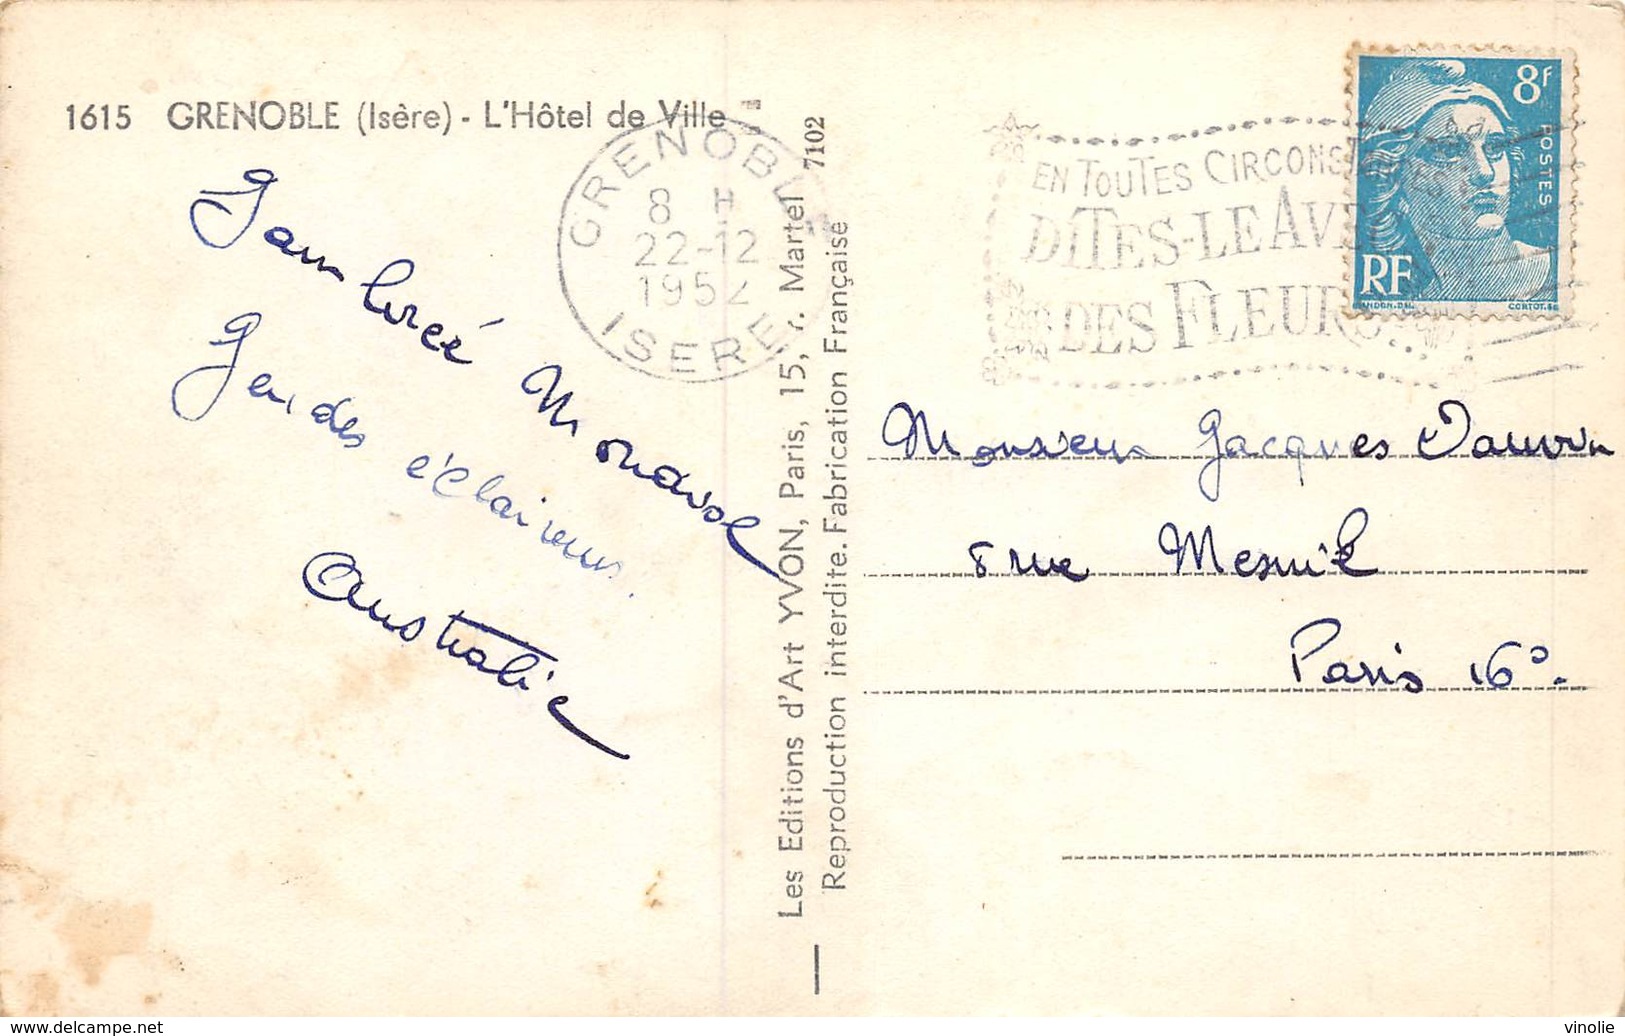 1615 GRENOBLE (Isère) - L'Hôtel de Ville
Jamborée Mondial
Jeu des éclaireurs.
Australie
GRENOBLE
8 H
22-12
1952
ISERE
Les Editions d'Art YVON, Paris, 15, r. Martel 7102
Reproduction interdite. Fabrication Française
EN TOUTES CIRCONSTANCES
DITES-LE AVEC
DES FLEURS
8f
POSTES
RF
GANDON. DEL.
CORTOT. SC
Monsieur Jacques
8 rue Mesnil
Paris 16e.
delcampe.net
vinolie